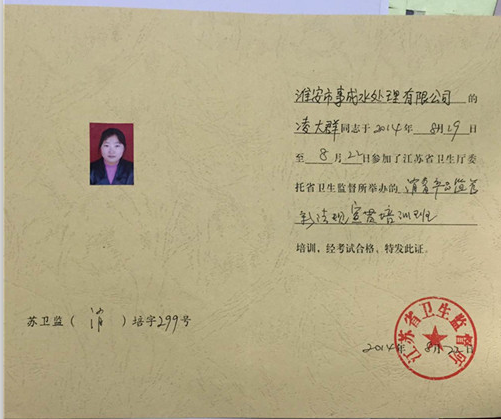 淮安市事成水处理有限公司 的
凌大群同志于2014年 8月19日
至 8月22日参加了江苏省卫生厅委
托省卫生监督所举办的 消毒产品监管
新法规宣贯培训班
培训，经考试合格，特发此证。
苏卫监（ 消 ）培字299号
江苏省卫生监督所
2014年 8月22日